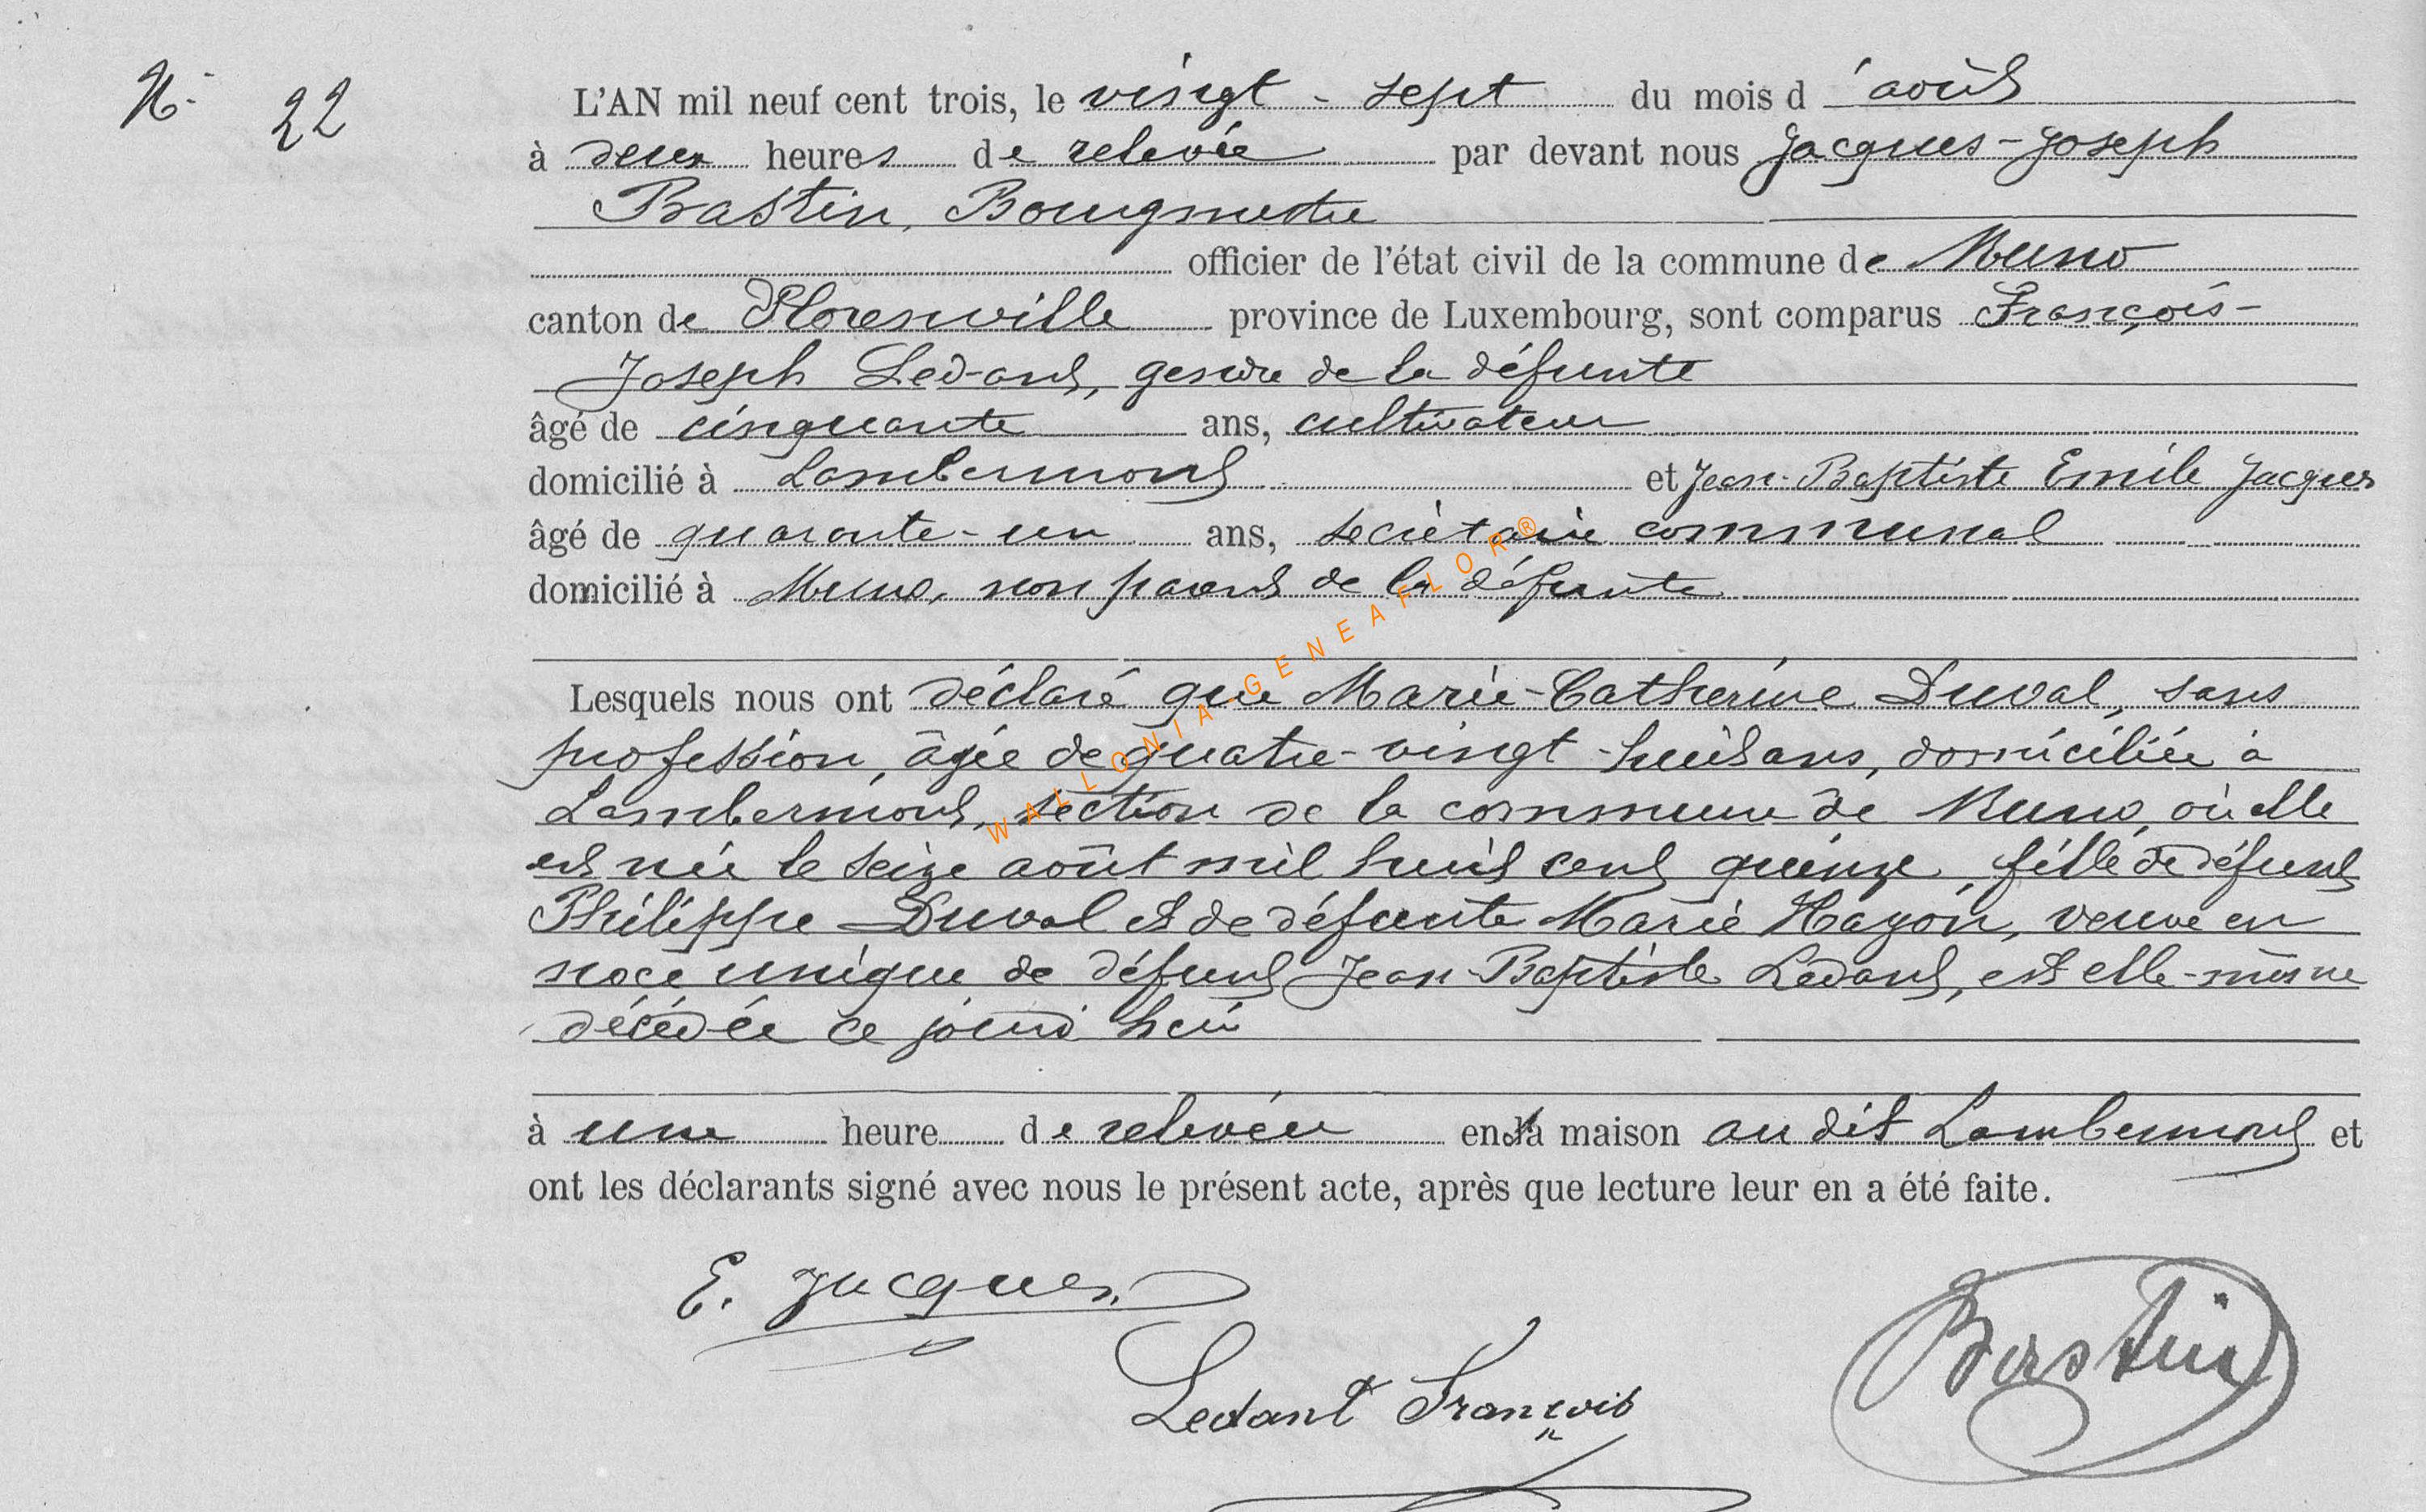 N° 22
L'AN mil neuf cent trois, le vingt-sept du mois d'août
à deux heures de relevée par devant nous Jacques-Joseph
Bastin, Bourgmestre
officier de l'état civil de la commune de Muno
canton de Florenville province de Luxembourg, sont comparus François-
Joseph Ledant, gendre de la défunte
âgé de cinquante ans, cultivateur
domicilié à Lambermont et Jean-Baptiste Emile Jacques
âgé de quarante-un ans, secrétaire communal
domicilié à Muno, non parent de la défunte
Lesquels nous ont déclaré que Marie-Catherine Duval, sans
profession, âgée de quatre-vingt-huit ans, domiciliée à
Lambermont, section de la commune de Muno, où elle
est née le seize août mil huit cent quinze, fille de défunt
Philippe Duval et de défunte Marie Hazon, veuve en
noce unique de défunt Jean-Baptiste Ledant, est elle-même
décédée ce jourd'hui
à une heure de relevée en la maison au dit Lambermont et
ont les déclarants signé avec nous le présent acte, après que lecture leur en a été faite.
E. Jacques
Ledant François
Bastin
WALLONIA-GENEAFLOR®